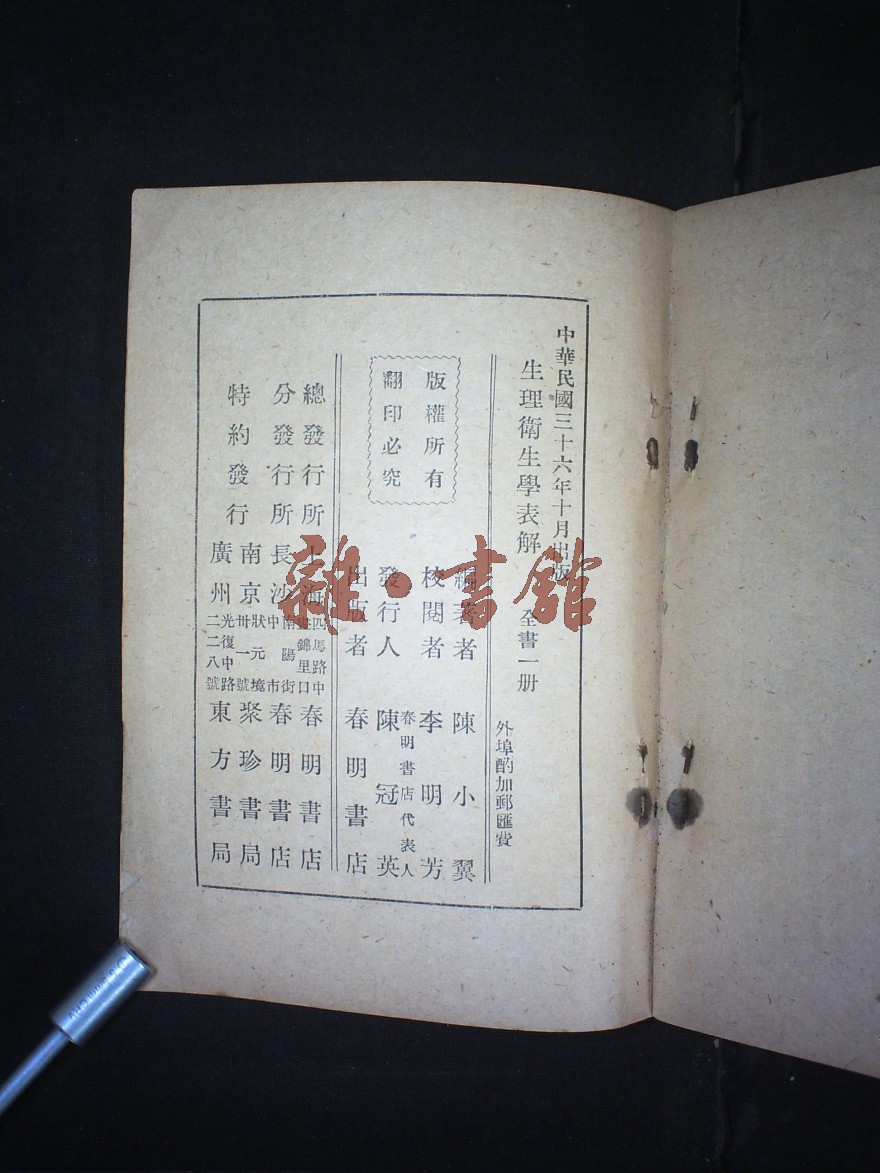 中華民國三十六年十月出版
生理衛生學表解 全書一册
外埠酌加郵匯費
版權所有
翻印必究
編著者 陳小翼
校閱者 李明芳
發行人 春明書店代表人 陳冠英
出版者 春明書店
總發行所 上海 四馬路中 錦里口 春明書店
分發行所 長沙 南陽街 中市 春明書店
特約發行 南京 狀元境 卅一號 聚珍書局
廣州 光復中路 二二八號 東方書局
雜·書館